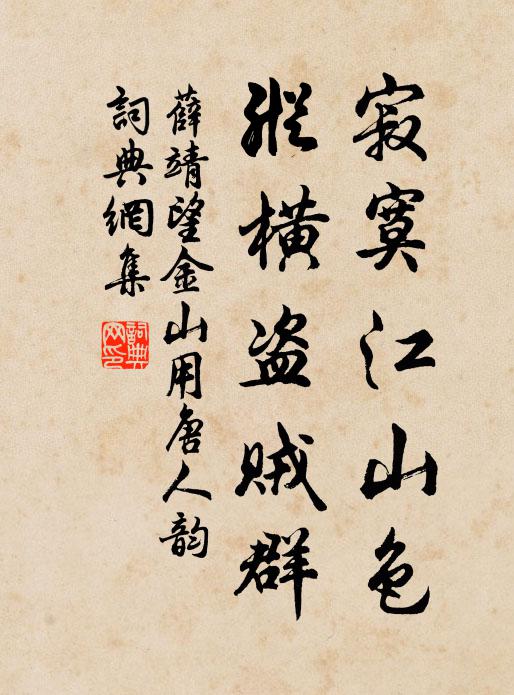 寂寞江山色
縱橫盜賊群
薛靖望金山用唐人韵
詞典網集
詞典
网印